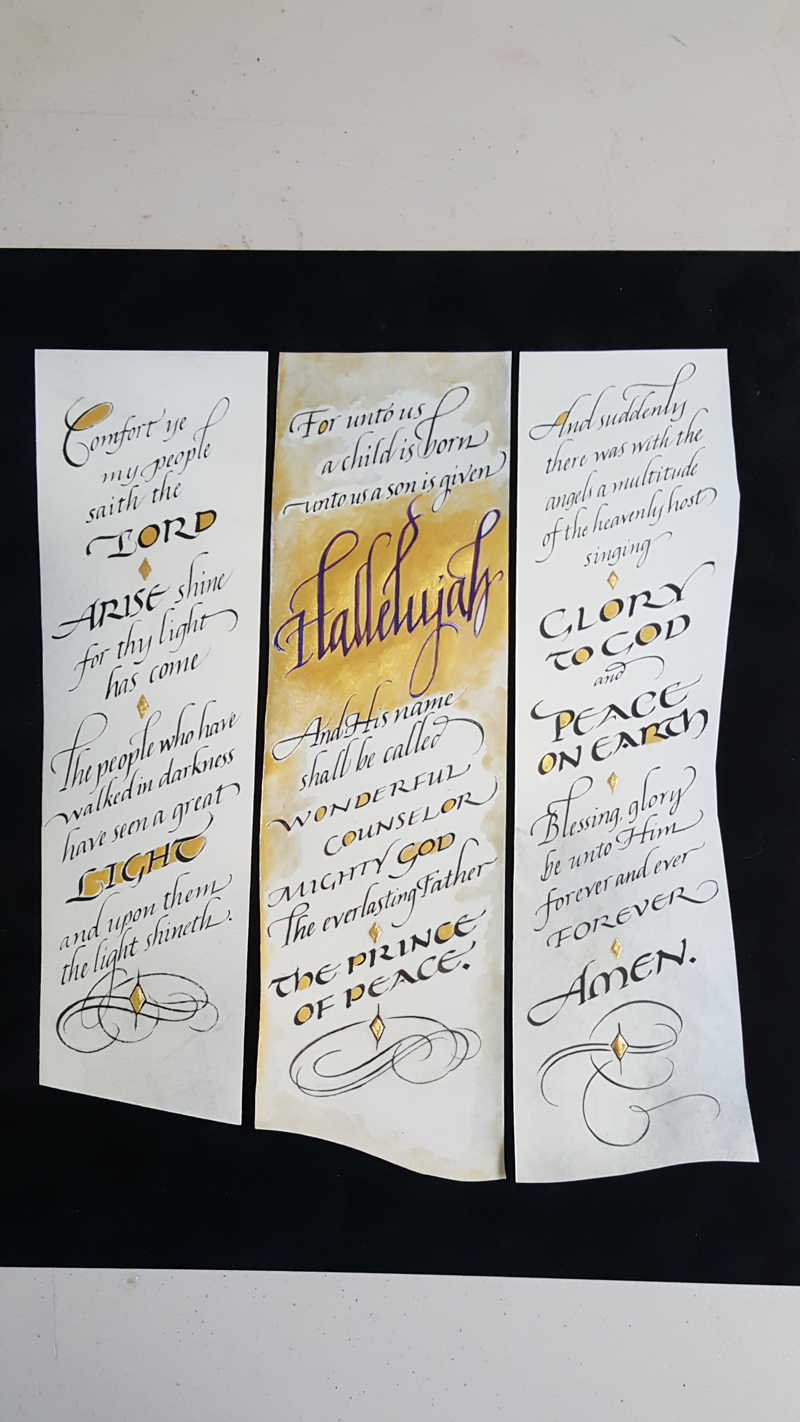 Comfort ye
my people
saith the
LORD
ARISE shine
for thy light
has come
The people who have
walked in darkness
have seen a great
LIGHT
and upon them
the light shineth.
For unto us
a child is born
unto us a son is given
Hallelujah
And His name
shall be called
WONDERFUL
COUNSELOR
MIGHTY GOD
The everlasting Father
THE PRINCE
OF PEACE.
And suddenly
there was with the
angels a multitude
of the heavenly host
singing
GLORY
TO GOD
and
PEACE
ON EARTH
Blessing, glory
be unto Him
forever and ever
FOREVER
AMEN.